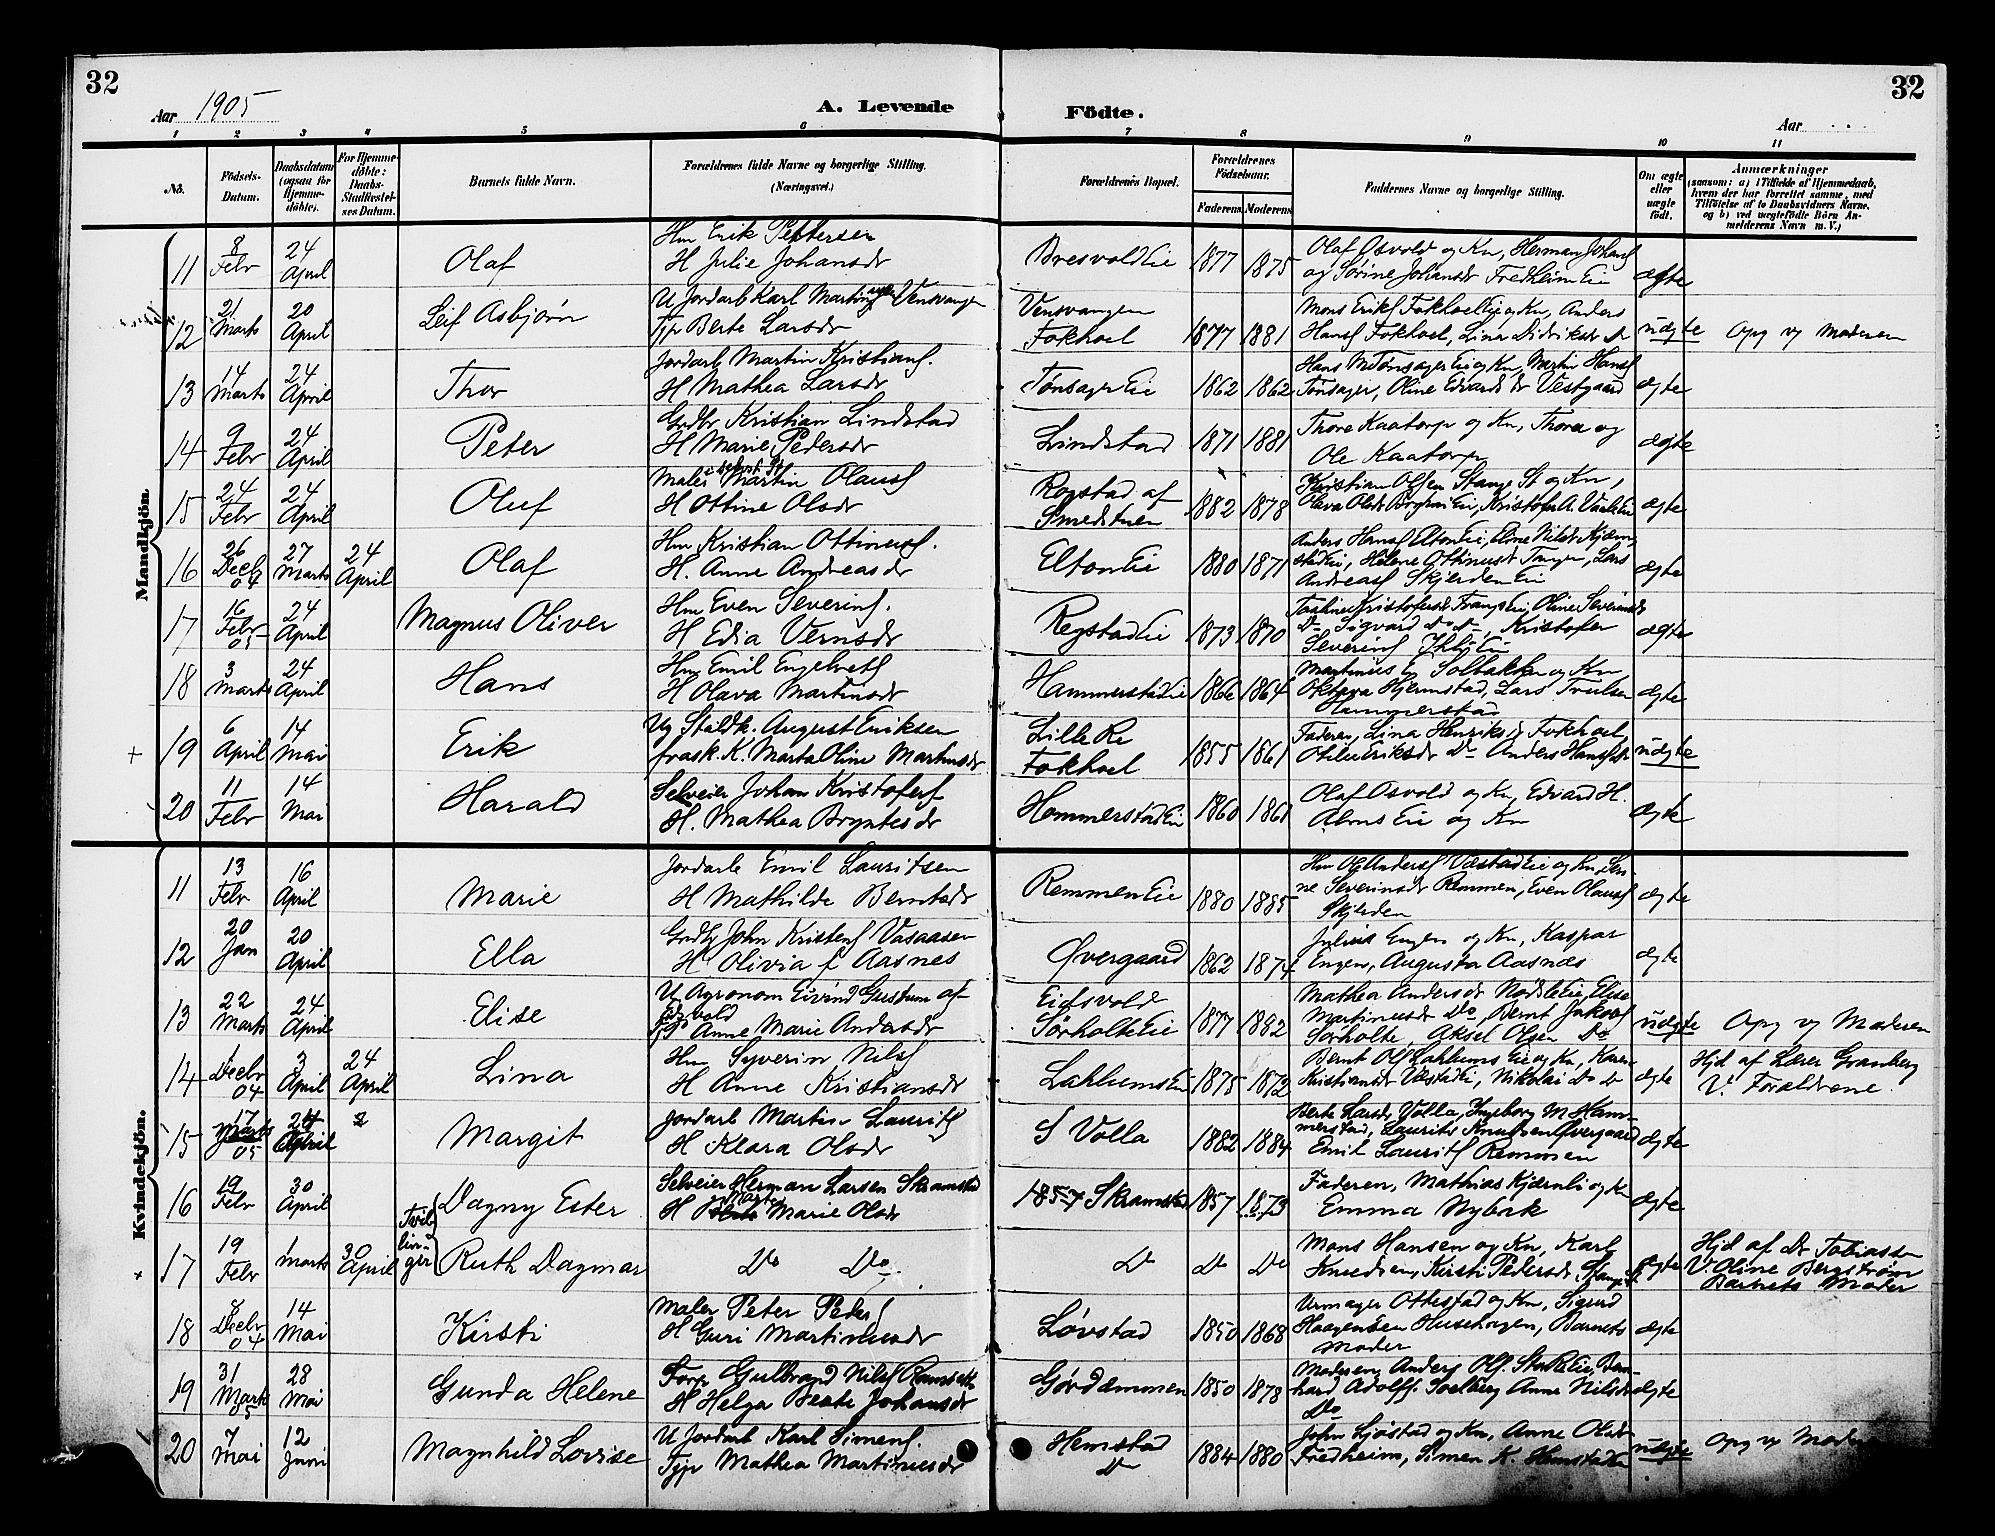 32
32
Aar 1905
A. Levende
Födte.
Aar
1 2 3 4 5 6 7 8 9 10 11
No.
Födsels-Datum.
Daabsdatum (ogsaa for Hjemme-döbte).
For Hjemme-döbte: Daabs-Stadfæstel-ses Datum.
Barnets fulde Navn.
Forældrenes fulde Navne og borgerlige Stilling. (Næringsvei.)
Forældrenes Bopæl.
Forældrenes Födselsaar.
Faderens Moderens
Faddernes Navne og borgerlige Stilling.
Om ægte eller uægte født.
Anmærkninger
(saasom: a) i Tilfælde af Hjemmedaab, hvem der har forrettet samme, med Tilføielse af to Daabsvidners Navne, og b) ved uægtefödte Börn An-melderens Navn m. V.)
Mandkjön.
11 8 Febr 24 April Olaf
Hm Erik Pettersen
H Julie Johansdr
Bresvold Eie 1877 1875
Olaf Osvold og Kn, Herman Johans
og Sørine Johansdr Fredheim Eie
ægte
12 21 Marts 20 April Leif Asbjørn
U Jordarb Karl Martins Vensvangen
Tjp Berte Larsdr
Vensvangen
Fokhoel
1877 1881
Mons Eriks Fokhoel Eie og Kn, Anders
Hans Fokhoel, Lina Didriksdr Do
uægte
Opg vg Moderen
13 14 Marts 24 April Thor
Jordarb Martin Kristians.
H Mathea Larsdr
Tønsager Eie 1862 1862
Hans M Tønsager Eie og Kn, Martin Hans
Tønsager, Oline Edvardsdr Vestgaard
ægte
14 9 Febr 24 April Peter
Grdbr Kristian Lindstad
H Marie Pedersdr
Lindstad 1871 1881
Thore Kaatorp og Kn, Thora og
Ole Kaatorp
ægte
15 24 Febr 24 April Oluf
Maler Martin Olaus
H Ottine Olsdr
Rogstad af
Smedstuen
1882 1878
Kristian Olsen Stange St og Kn,
Olava Olsdr Eie, Kristofer A.
ægte
16 26 Decbr 04 27 Marts 24 April Olaf
Hm Kristian Ottinius.
H. Anne Andreasdr
Elton Eie 1880 1871
Anders Hans Elton Eie,
stad Eie, Helene Ottinusdr Tangen, Lars
Andreas Skjerden Eie
ægte
17 16 Febr 05 24 April Magnus Oliver
Hm Even Severins.
H Edia Vernsdr
Regstad Eie 1873 1870
Oline Severinsdr
Do Sigvard Do Do Kristofer
Severins
ægte
18 3 Marts 24 April Hans
Hm Emil Engebrets
H Olava Martinsdr
Hammerstad Eie 1866 1864
Martinius E Solbakken og Kn
Oktava Hjermstad, Lars Truelsen
Hammerstad
ægte
19 6 April 14 Mai Erik
Ug Staldk. August Eriksen
frask. K. Marta Oline Martinsdr
Lille Re
Fokhoel
1855 1861
Faderen, Lina Henriksdr Fokhoel,
Otilie Eriksdr Do Anders Hans
uægte
20 11 Febr 14 Mai Harald
Selveier Johan Kristofers
H. Mathea Bryntesdr
Hommerstad Eie 1860 1861
Olaf Osvold og Kn, Edvard H.
Alms Eie og Kn
ægte
Kvindekjön.
11 13 Febr 16 April Marie
Jordarb Emil Lauritsen
H Mathilde Berntsdr
Remmen Eie 1880 1885
Hm Ole Anders Væstad Eie og Kn, Seri
ne Severinsdr Remmen, Even Olaus
Skjerden
ægte
12 20 Jan 20 April Ella
Grdbr John Kristens Vasaasen
H Olivia f Aasnes
Øvergaard 1862 1874
Julius Engen og Kn, Kaspar
Engen, Augusta Aasnes
ægte
13 22 Marts 24 April Elise
U Agronom Eivind Gustum af
Eidsvold
Tjp Anne Marie Andersdr
Eidsvold
Sørholte Eie
1877 1882
Mathea Andersdr Nødsle Eie, Elise
Martinusdr Do, Bernt Jakobs
Sørholte, Aksel Olsen Do
uægte
Opg vg Moderen
14 1 Decbr 04 3 April 24 April Lina
Hm Syverin Nils
H Anne Kristiansdr
Lahlums Eie 1875 1872
Bernt Ols Lahlums Eie og Kn, Karen
Kristiansdr Væstad Eie, Nikolai Do Do
ægte
Hjd af Lærer Granberg
V. Forældrene
15 17 Marts 05 24 April Margit
Jordarb Martin Laurits
H Klara Olsdr
S Volla 1882 1884
Berte Larsdr Volla, Ingeborg M Ham-
merstad, Laurits Knudsen Øvergaard
Emil Laurits Remmen
ægte
Tvil-lin-ger
16 19 Febr 30 April Dagny Ester
Selveier Herman Larsen Skramstad
H Marte Marie Olsdr
1857 Skramstad 1857 1873
Faderen, Mathias Kjærnli og Kn
Emma Nybak
ægte
17 19 Febr 1 Marts 30 April Ruth Dagmar
Do Do
Do Do Do
Mons Hansen og Kn, Karl
Knudsen, Kirsti Pedersdr, Stange St.
ægte
Hjd af Dr Tobiassen
V. Oline Bergstrøm
Barnets Moder
18 8 Decbr 04 14 Mai Kirsti
Maler Peter Peders
H Guri Martinusdr
Løvstad 1850 1868
Urmager Ottestad og Kn, Sigurd
Haagensen Husehagen, Barnets
Moder
ægte
19 31 Marts 5 28 Mai Gunda Helene
Forp Gulbrand Nils Ramseth
H Helga Beate Johansdr
Gørdemmen 1850 1878
Moderen, Anders Ols. Eie, Bern-
hard Adolfs. Solberg, Anne Nilsdr
Do
ægte
20 7 Mai 12 Juni Magnhild Lovise
U Jordarb Karl Simens.
Tjp Mathea Martiniusdr
Hemstad
Do
1884 1880
John Sjøstad og Kn, Anne Olsdr
Fredheim, Simen K. Hemstad Eie
uægte
Opg vg Moderen